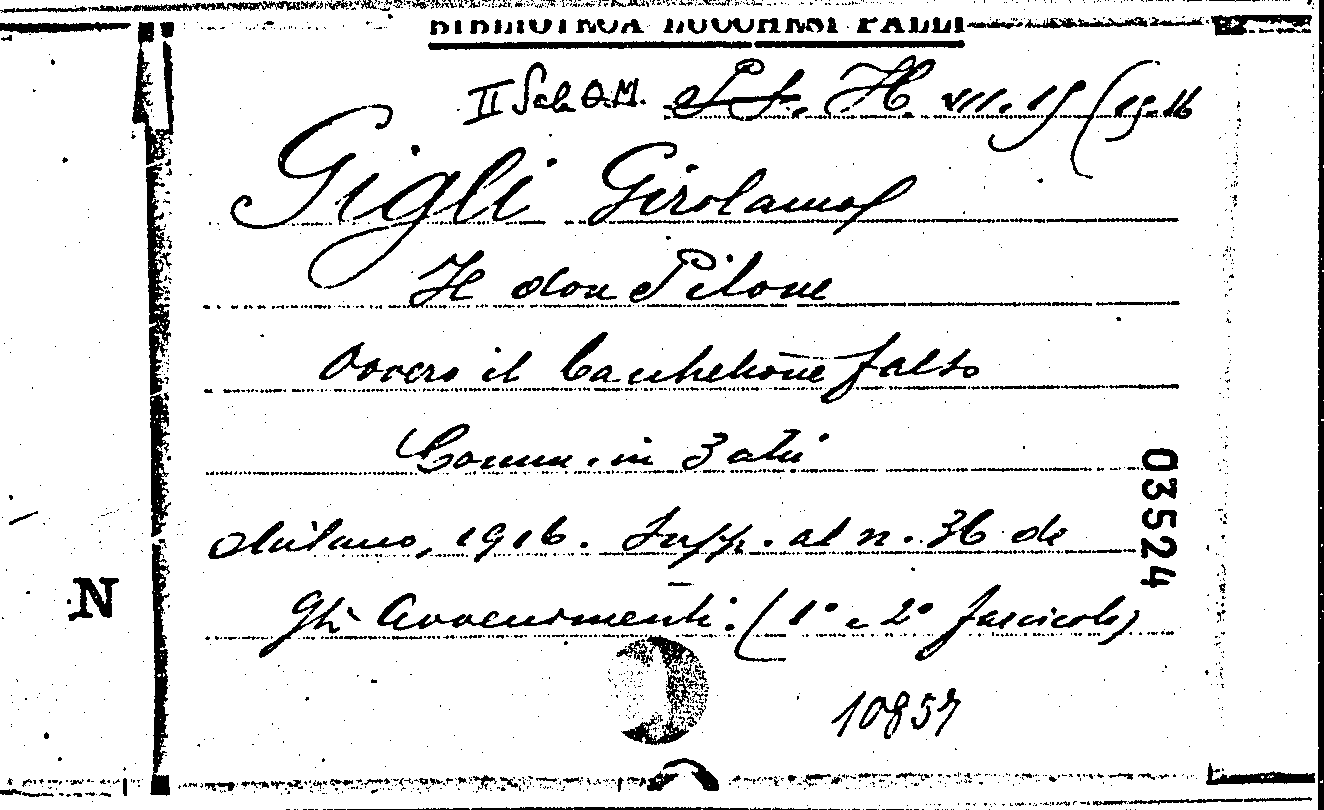 BIBLIOTECA LUCCHESI PALLI
II Sala O.M. St. H. VII. 15 (15-16
Gigli Girolamo
Il don Pilone
ovvero il bacchettone falso
Comm. in 3 atti
Milano, 1916. Supp. al n. 36 de
Gli Avvenimenti. (1° e 2° fascicolo)
10857
03524
N